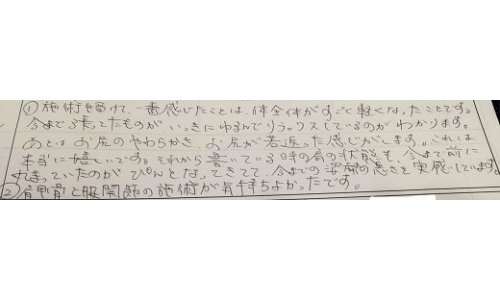 ①施術を受けて、一番感じたことは、体全体がすごく軽くなったことです。
今まで張ってたものがいっきにゆるんでリラックスしているのがわかります。
あとはお尻のやわらかさ、お尻が若返った感じがします。これは
本当に嬉しいです。それから書いている時の肩の状態も、今まで前に
丸まっていたのがぴんとなってきてて、今までの姿勢の悪さを実感しています。
②肩甲骨と股関節の施術が気持ちよかったです。